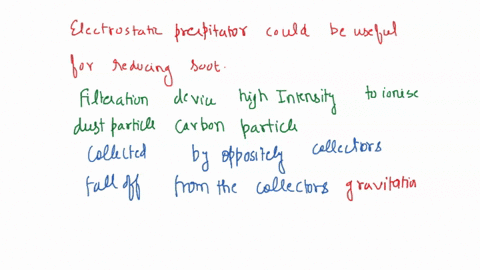 Electrostatic precpitator could be useful
for reducing soot.
Filteration device high Intensity to ionise
dust particle carbon particle
collected by oppositely collectors
fall off from the collectors gravitatia